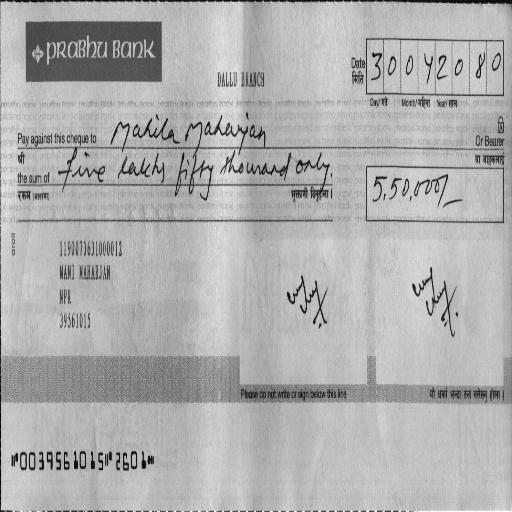 PRABHU BANK
DALLU BRANCH
Date
मिति
3 0 0 4 2 0 8 0
Day/ गते Month/ महिना Year/ साल
Pay against this cheque to Mahila Maharjan Or Bearer
श्री वा वाहकलाई
the sum of Five lakhs fifty thousand only.
रकम (अक्षरमा) भुक्तानी दिनुहोस ।
5,50,000/-
1190073631000012
MANI MAHARJAN
NPR
39561015
Please do not write or sign below this line
⑈0039561015⑈2601⑈